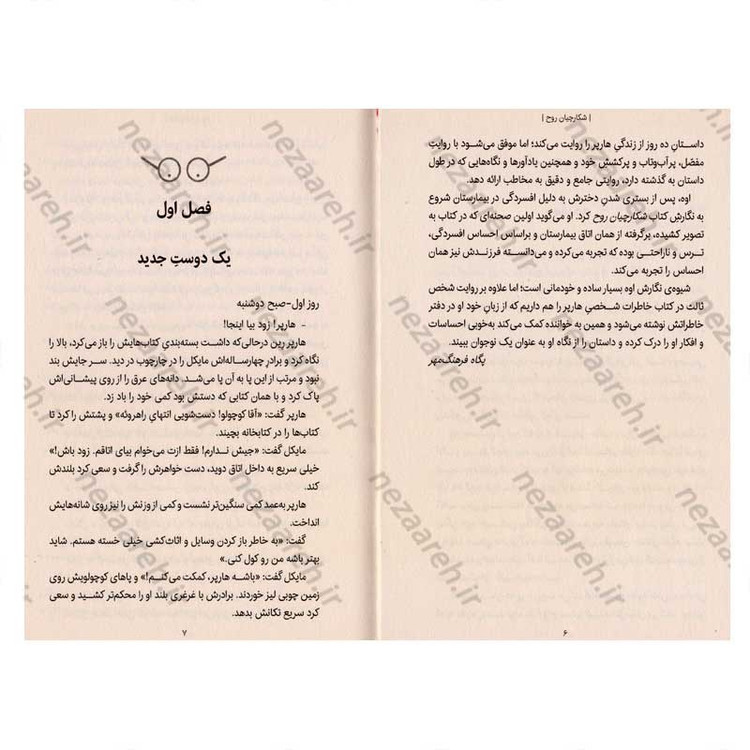 | شکارچیان روح |
داستانِ ده روز از زندگی هارپر را روایت می‌کند؛ اما موفق می‌شود با روایتِ
مفصّل، پرآب‌وتاب و پرکشش خود و همچنین یادآورها و نگاه‌هایی که در طول
داستان به گذشته دارد، روایتی جامع و دقیق به مخاطب ارائه دهد.
اوه، پس از بستری شدنِ دخترش به دلیل افسردگی در بیمارستان شروع
به نگارشِ کتاب شکارچیان روح کرد. او می‌گوید اولین صحنه‌ای که در کتاب به
تصویر کشیده، برگرفته از همان اتاق بیمارستان و براساس احساس افسردگی،
تـرس و ناراحتـی بوده که تجربه می‌کرده و می‌دانسته فرزنـدش نیز همان
احساس را تجربه می‌کند.
شیوه‌ی نگارش اوه بسیار ساده و خودمانی است؛ اما علاوه بر روایت شخص
ثالث در کتاب خاطرات شخصیِ هارپر را هم داریم که از زبانِ خود او در دفتر
خاطراتش نوشته می‌شود و همین به خواننده کمک می‌کند به‌خوبی احساسات
و افکار او را درک کرده و داستان را از نگاه او به عنوان یک نوجوان ببیند.
پگاه فرهنگ‌مهر
۶
فصل اول
یک دوستِ جدید
روز اول-صبح دوشنبه
- هارپر! زود بیا اینجا!
هارپر رین درحالی‌که داشت بسته‌بندیِ کتاب‌هایش را باز می‌کرد، بالا را
نگاه کرد و برادرِ چهارساله‌اش مایکل را در چارچوب در دید. سر جایش بند
نبود و مرتب از این پا به آن پا می‌شـد. دانه‌های عرق را از روی پیشانی‌اش
پاک کرد و با همان کتابی که دستش بود کمی خود را باد زد.
هارپر گفت: «آقا کوچولو! دست‌شویی انتهایِ راهروئه» و پشتش را کرد تا
کتاب‌ها را در کتابخانه بچیند.
مایکل گفت: «جیش ندارم! فقط ازت می‌خوام بیای اتاقم. زود باش!»
خیلی سریع به داخل اتاق دوید، دست خواهرش را گرفت و سعی کرد بلندش
کند.
هارپر به‌عمد کمی سنگین‌تر نشست و کمی از وزنش را نیز روی شانه‌هایش
انداخت.
گفت: «به خاطر باز کردن وسایل و اثاث‌کشی خیلی خسته هستم. شاید
بهتر باشه من رو کول کنی.»
مایکل گفت: «باشـه هارپر، کمکت می‌کنـم!» و پاهای کوچولویش روی
زمین چوبی لیز خوردند. برادرش با غرغری بلند او را محکم‌تر کشـید و سعی
کرد سریع تکانش بدهد.
۷
nezaareh.ir